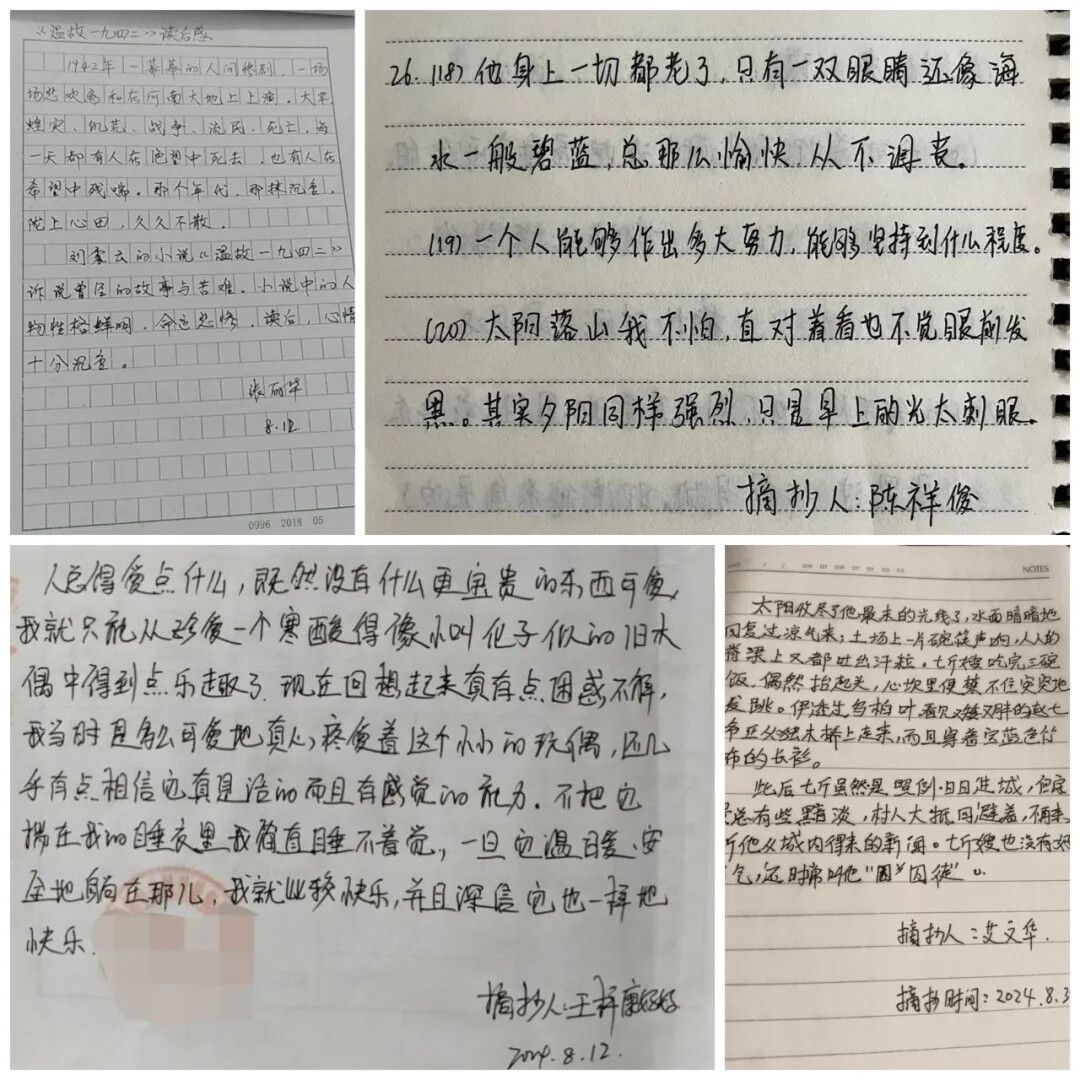 《温故一九四二》读后感
1942年一幕幕的人间惨剧，一场
场悲欢离和在河南大地上上演。大旱
蝗灾、饥荒、战争、流民、死亡，每
一天都有人在绝望中死去，也有人在
希望中残喘。那个年代，那抹沉重，
陇上心田，久久不散。
刘震云的小说《温故一九四二》
诉说曾经的故事与苦难。小说中的人
物性格鲜明，命运悲惨，读后，心情
十分沉重。
张丽华
8.12
0996 2018 05
26.(18)他身上一切都老了，只有一双眼睛还像海
水一般碧蓝，总那么愉快，从不沮丧。
(19)一个人能够作出多大努力，能够坚持到什么程度。
(20)太阳落山我不怕，直对着看也不觉眼前发
黑。其实夕阳同样强烈，只是早上的光太刺眼。
摘抄人：陈祥俊
人总得爱点什么，既然没有什么更宝贵的东西可爱，
我就只能从珍爱一个寒酸得像小叫化子似的旧木
偶中得到点乐趣了。现在回想起来真有点困惑不解，
我当时是多么可爱地真心疼爱着这个小小的玩偶，还几
乎有点相信它真是活的而且有感觉的能力。不把它
搁在我的睡衣里我简直睡不着觉，一旦它温暖、安
全地躺在那儿，我就比较快乐，并且深信它也一样地
快乐。
摘抄人：王梓康
2024.8.12.
NOTES
太阳收尽了他最末的光线了，水面暗暗地
回复过凉气来；土场上一片碗筷声响，人人的
脊梁上又都吐出汗粒。七斤嫂吃完三碗
饭，偶然抬起头，心坎里便禁不住突突地
发跳。伊透过乌桕叶，看见又矮又胖的赵七
爷正从独木桥上走来，而且穿着宝蓝色竹
布的长衫。
此后七斤虽然是照例日日进城，但家
总有些黯淡，村人大抵回避着，不再来
听他从城内得来的新闻。七斤嫂也没有好
气，还时常叫他“囚徒”。
摘抄人：艾文华.
摘抄时间：2024.8.3